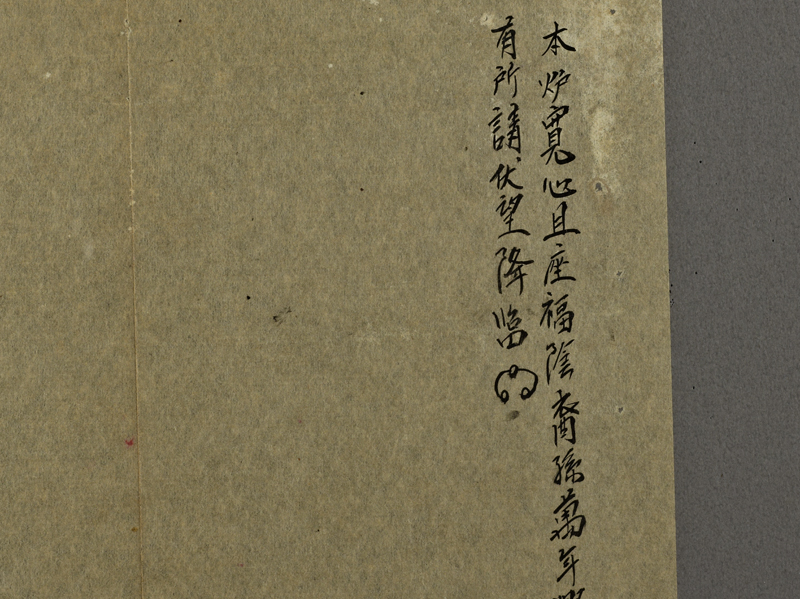 本炉寬心且座福陰裔孫萬年
有所請伏望降臨